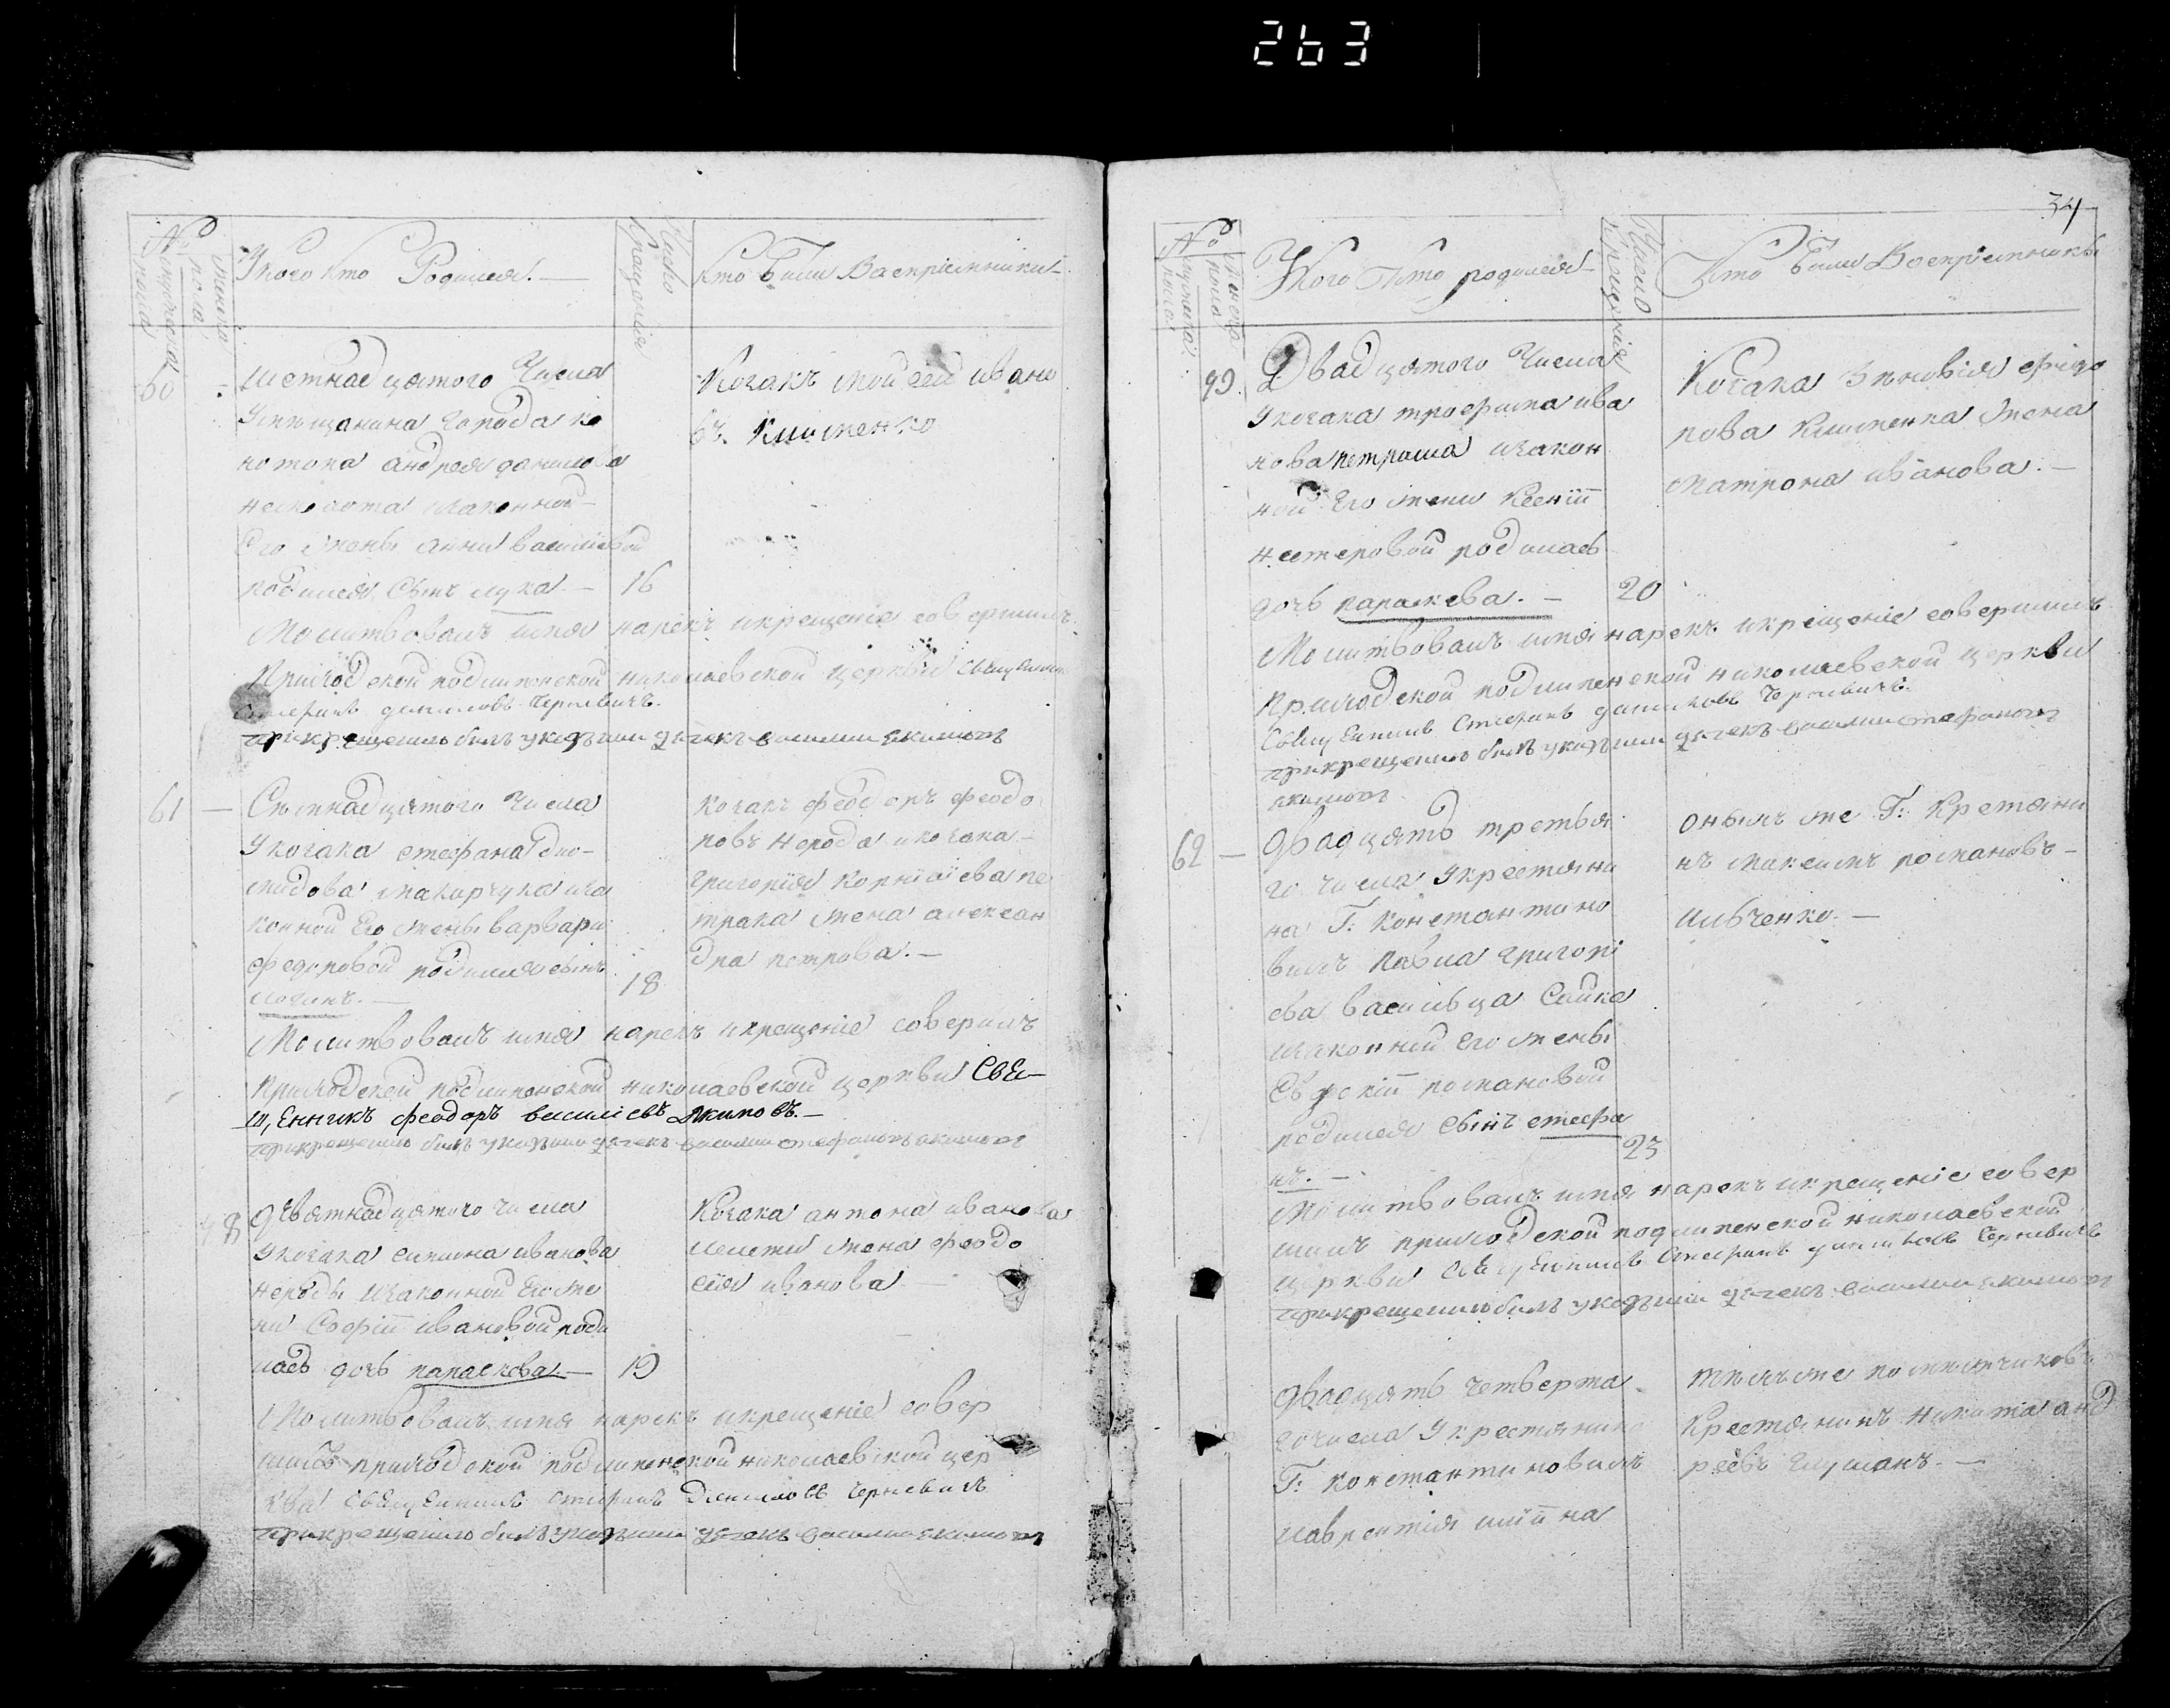 263
№
мужеска пола
женска пола
У кого кто Родился. —
Число крещенія
Кто Били Васприемники —
60
шетнадцятого Числа
Умещанина города ко
нотопа андрея данилова
изаконной —
Его жены анни василіевой
родился Сынъ лука. — 16
Козакъ мойсей ивано
въ Клименко
Молитвовалъ имя нарекъ икрещеніе совершилъ
Приходской подлипенской николаевской церкви Священникъ
Стефанъ даниловъ Черневичъ.
прикрещении билъ указний дячекъ василии якимовъ
61 —
Семнадцятого Числа
Укозака стефана дио—
мидова макарчука иза
конной Его жены варвари
федоровой родился сынъ 18
логинъ. —
козакъ феодоръ феодо
ровъ нерода икозака —
григорія корніліева пе
трака жена алексан
дра петрова. —
Молитвовалъ имя нарекъ икрещеніе совершилъ
Приходской подлипенской николаевской церкви Свя—
щенникъ феодоръ василіевъ якимовъ. —
прикрещении билъ указний дячекъ василии стефановъ якимовъ
48
девятнадцятого числа
Укозака симиона иванова
нероды изаконной Его же
ни Софіи ивановой роди
лась дочь параскева. — 19
Козака антона иванова
жена феодо
сія иванова —
Молитвовалъ имя нарекъ икрещеніе совер
шилъ приходской подлипенской николаевской цер
кви Священникъ Стефанъ Даниловъ Черневичъ
прикрещении билъ указний дячекъ василии якимовъ
34
№
мужеска пола
женска пола
Укого Кто родился —
Число крещенія
Кто Били Восприемники
49.
Двадцятого Числа
Укозака трофима ива
нова петраша изакон
ной Его жени Ксеніи
нестеровой родилась
дочь параскева. — 20
Козака Зѣновія федо
рова Клименка жена
матрона иванова. —
Молитвовалъ имя нарекъ икрещеніе совершилъ
Приходской подлипенской николаевской церкви
Священникъ Стефанъ даниловъ Черневичъ.
прикрещении билъ указний дячекъ василии стефановъ
якимовъ
62 —
двадцять третья
го числа Укрестяни
на Г: Константино
вихъ Павла григорі
ева васильца Сайка
изаконной Его жены
Евдокіи романовой
родился Сынъ стефа
нъ. — 23
онихъ же Г: Крестяни
нъ максимъ романовъ —
ильченко. —
Молитвовалъ имя нарекъ икрещеніе совер
шилъ приходской подлипенской николаевской
церкви Священникъ Стефанъ даниловъ Черневичъ
прикрещении билъ указний дячекъ василии якимовъ
двадцять четверта
го числа Укрестянина
Г: константиновихъ
лаврентія
тѣхъ же помѣщиковъ
Крестянинъ никита анд
реевъ глушакъ. —